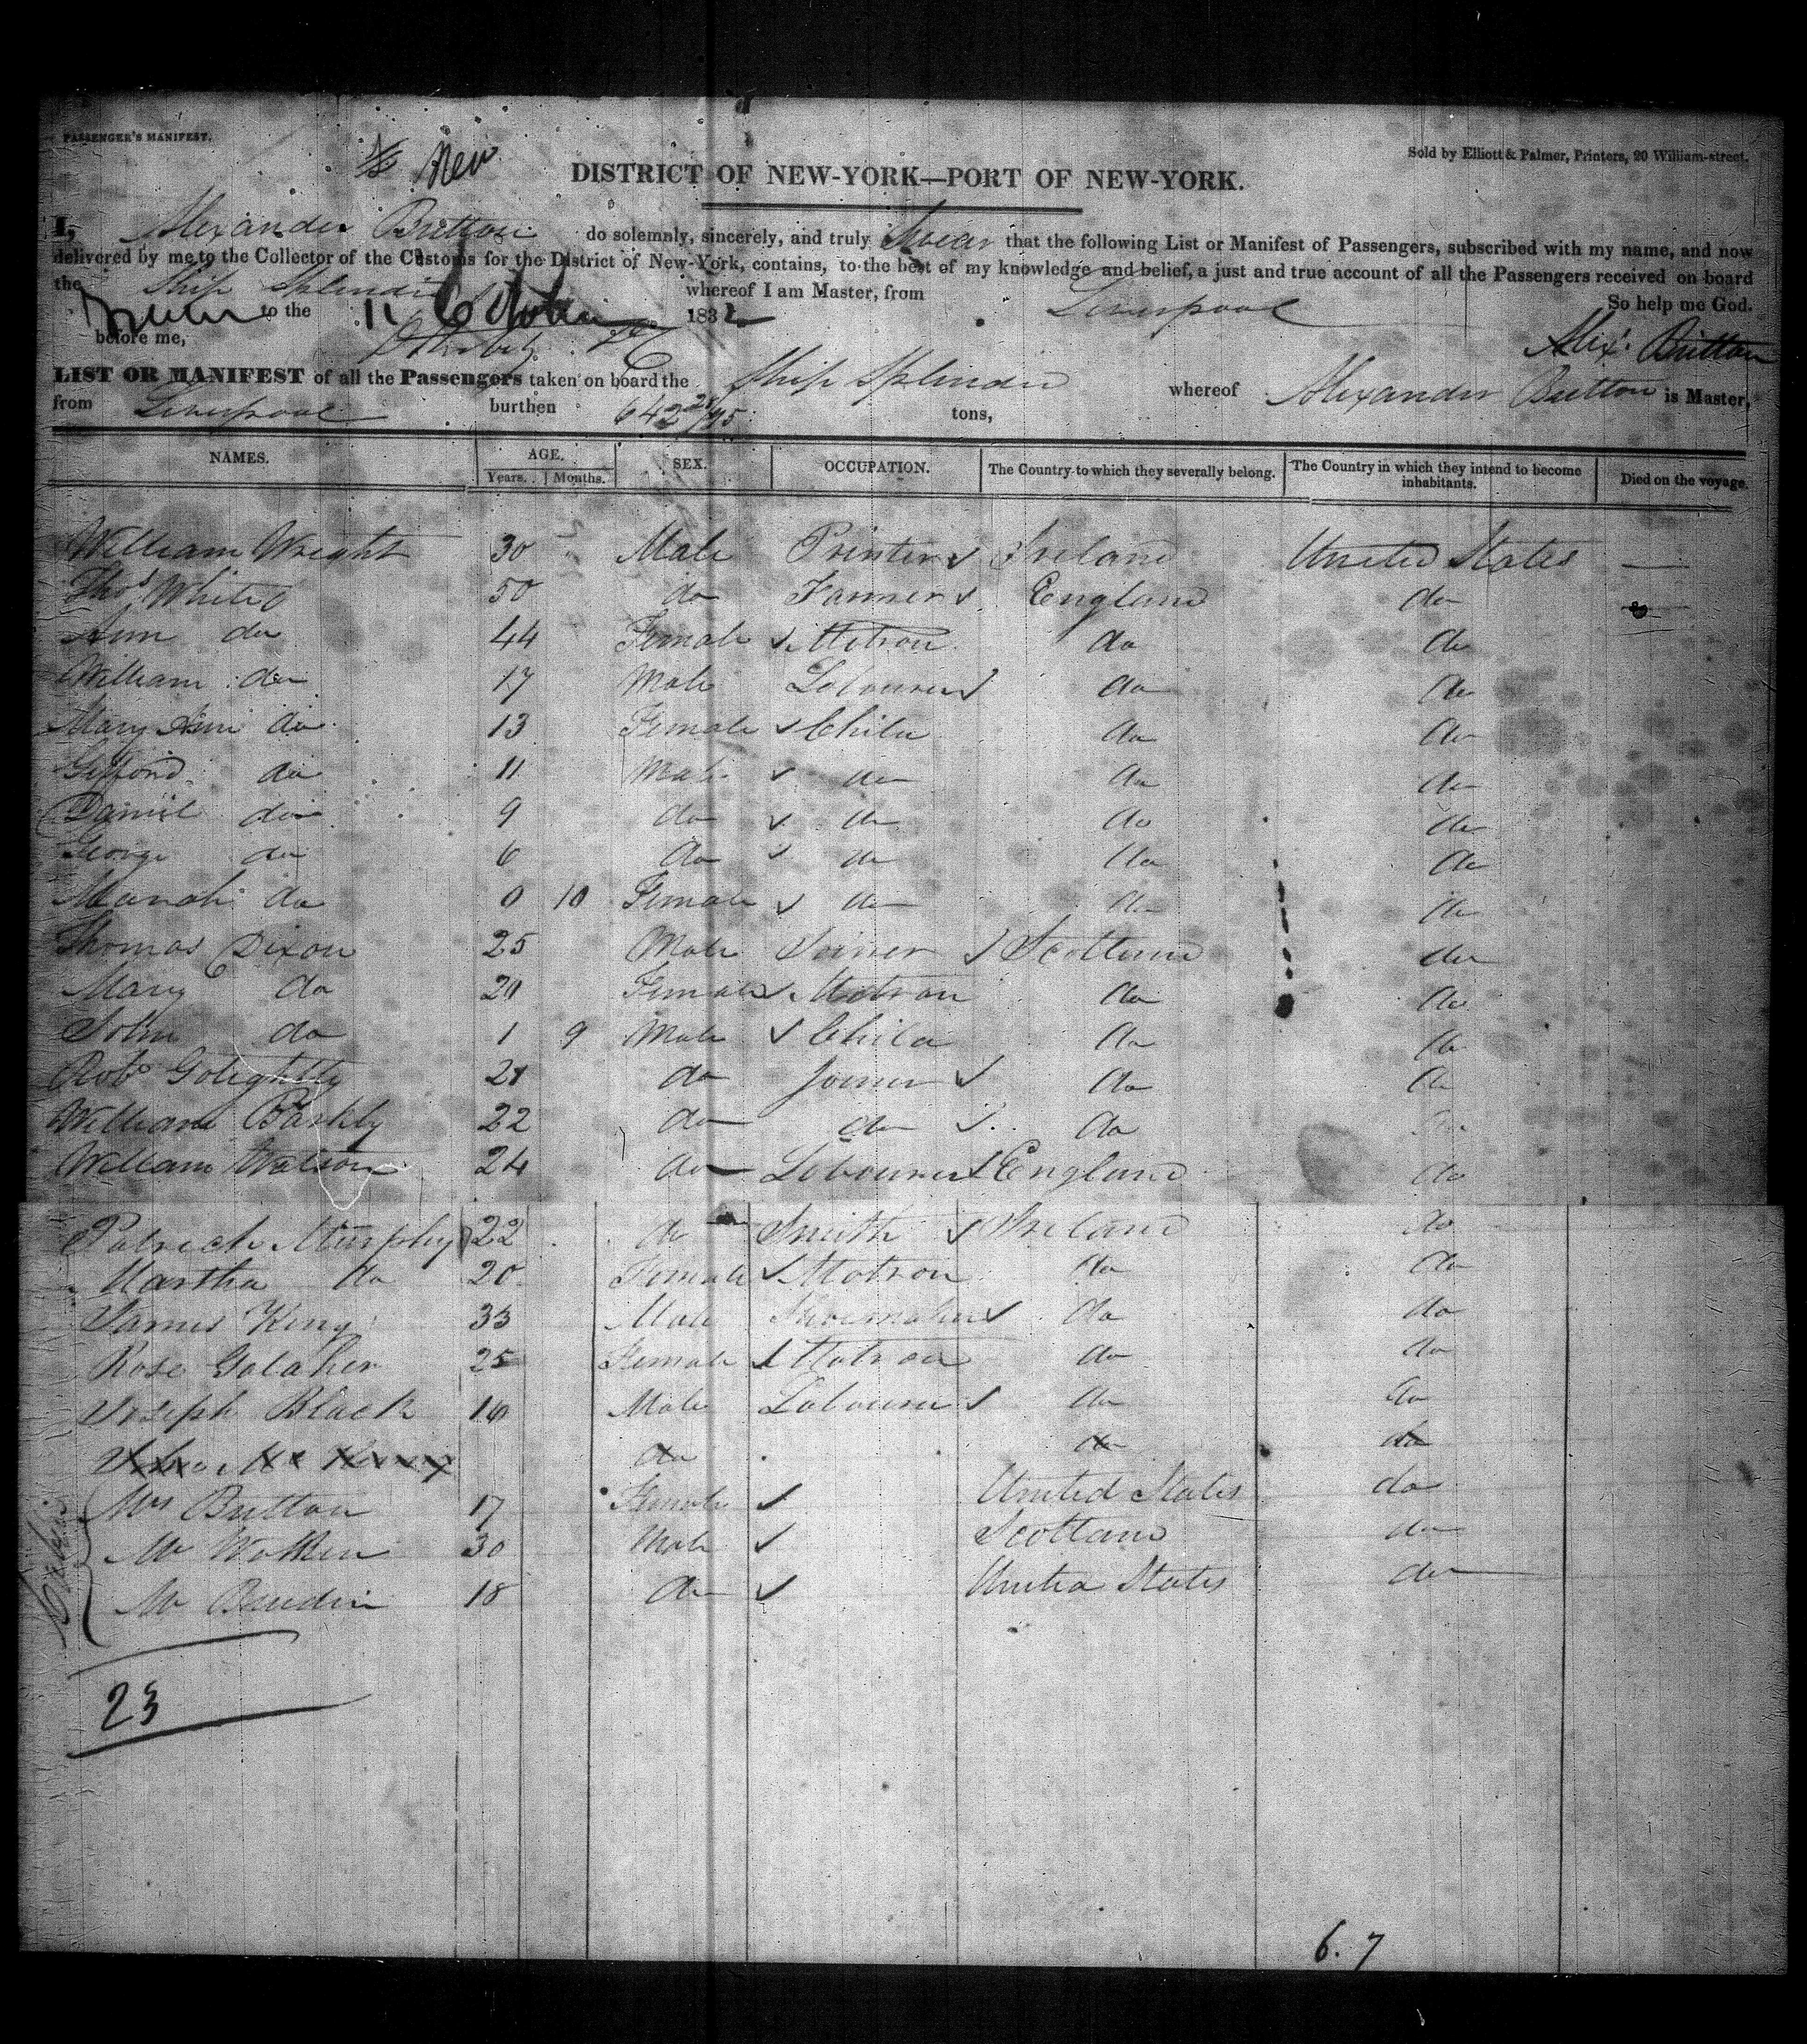 PASSENGER'S MANIFEST.
New
Sold by Elliott & Palmer, Printers, 20 William-street.
DISTRICT OF NEW-YORK—PORT OF NEW-YORK.
I, Alexander Britton do solemnly, sincerely, and truly Swear that the following List or Manifest of Passengers, subscribed with my name, and now
delivered by me to the Collector of the Customs for the District of New-York, contains, to the best of my knowledge and belief, a just and true account of all the Passengers received on board
the Ship Splendid whereof I am Master, from Liverpool So help me God.
Sworn to the 11 October 1832
before me, Alexr. Britton
LIST OR MANIFEST of all the Passengers taken on board the Ship Splendid whereof Alexander Britton is Master,
from Liverpool burthen 642 28/95 tons,
NAMES. AGE. SEX. OCCUPATION. The Country to which they severally belong. The Country in which they intend to become inhabitants. Died on the voyage.
Years. Months.
William Wright 30 Male Printer Ireland United States —
Thos White 50 do Farmer England do
Ann do 44 Female Matron do do
William do 17 Male Labourer do do
Mary Ann do 13 Female Child do do
Gifford do 11 Male do do do
Daniel do 9 do do do do
George do 6 do do do do
do 0 10 Female do do do
Thomas Dixon 25 Male Joiner Scotland do
Mary do 20 Female Matron do do
John do 1 9 Male Child do do
Robt Golightly 21 do Joiner do do
William Barkly 22 do do do
William Watson 24 do Labourer England do
Patrick Murphy 22 do Smith Ireland do
Martha do 20 Female Matron do do
James King 33 Male Shoemaker do do
Rose Golaher 25 Female Matron do do
Joseph Black 16 Male Labourer do do
do do do
Cabin
Mrs Britton 17 Female United States do
Mr 30 Male Scotland do
Mr 18 do United States do
23
6. 7